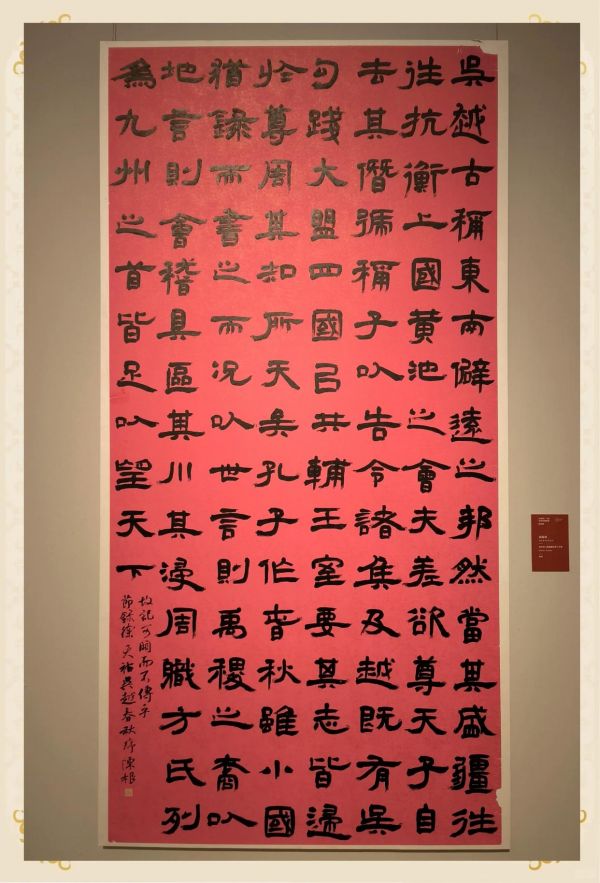 吳越古稱東南僻遠之邦然當其盛疆往
往抗衡上國黃池之會夫差欲尊天子自
去其僭號稱子以告令諸侯及越既有吳
句踐大盟四國以共輔王室要其志皆歸
於尊周其知所天矣孔子作春秋雖小國
猶錄而書之而況以世言則禹稷之裔以
地言則會稽具區其川其浸周職方氏列
為九州之首皆足以望天下
故記可闕而不傳乎
節錄徐天祜吳越春秋序 陳根